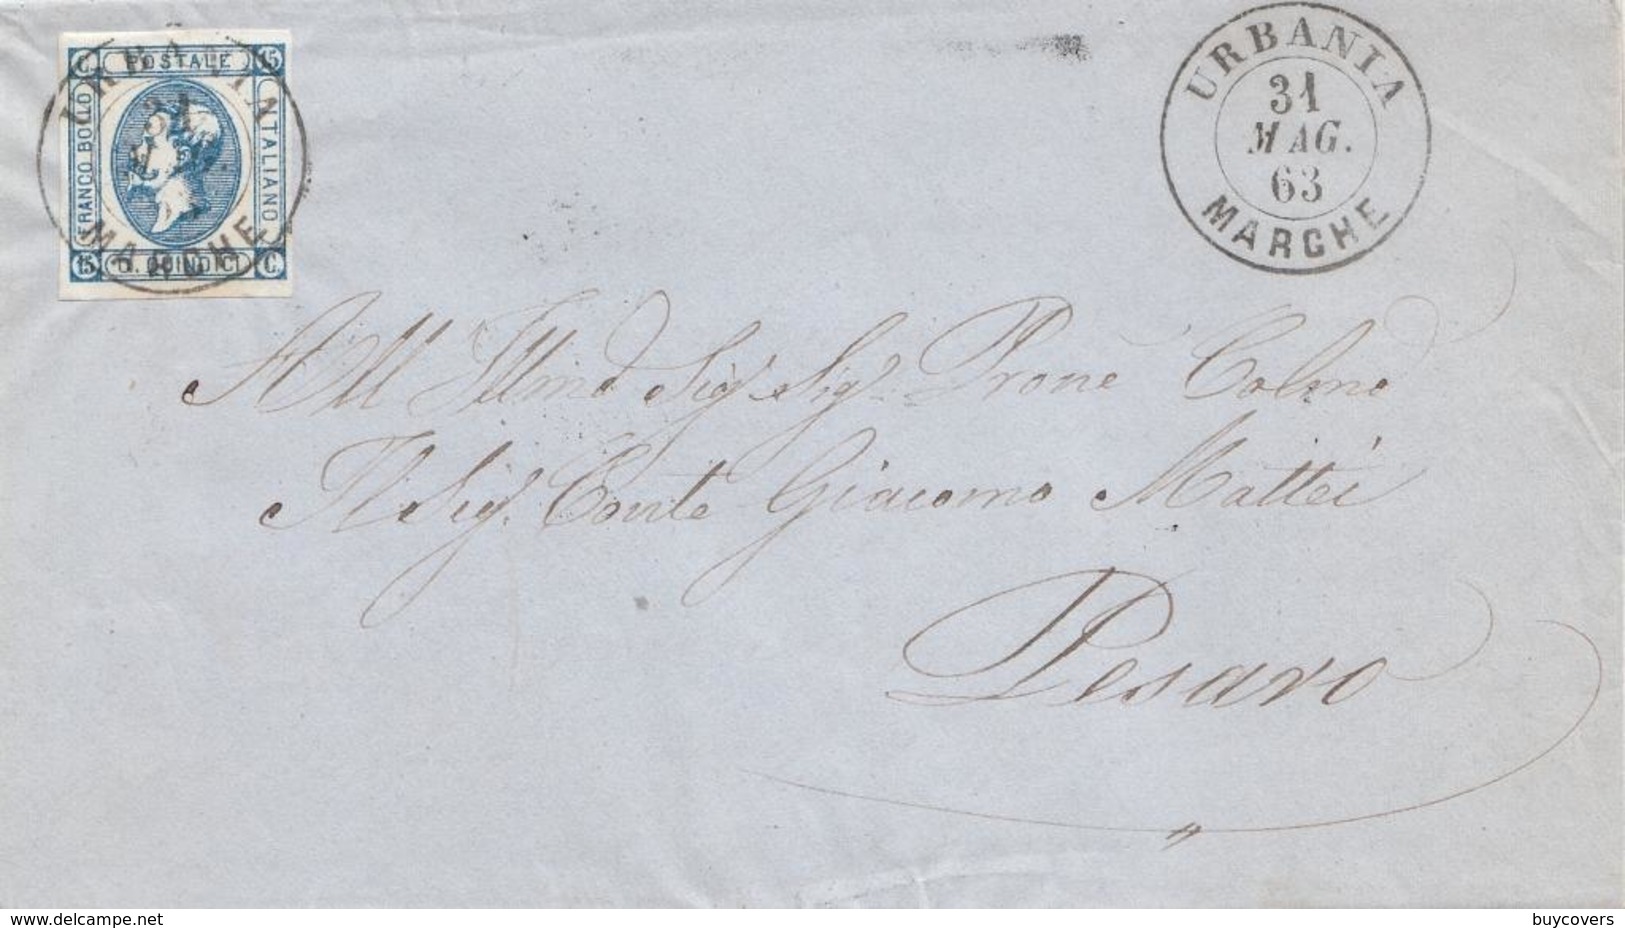 C. POSTALE 15
FRANCO BOLLO
ITALIANO
15 C. QUINDICI C.
URBANIA
31
MARCHE
URBANIA
31
MAG.
63
MARCHE
All' Illmo Sig. Sig. Prone Colmo
Il Sig. Conte Giacomo Mattei
Pesaro
www.delcampe.net
buycovers